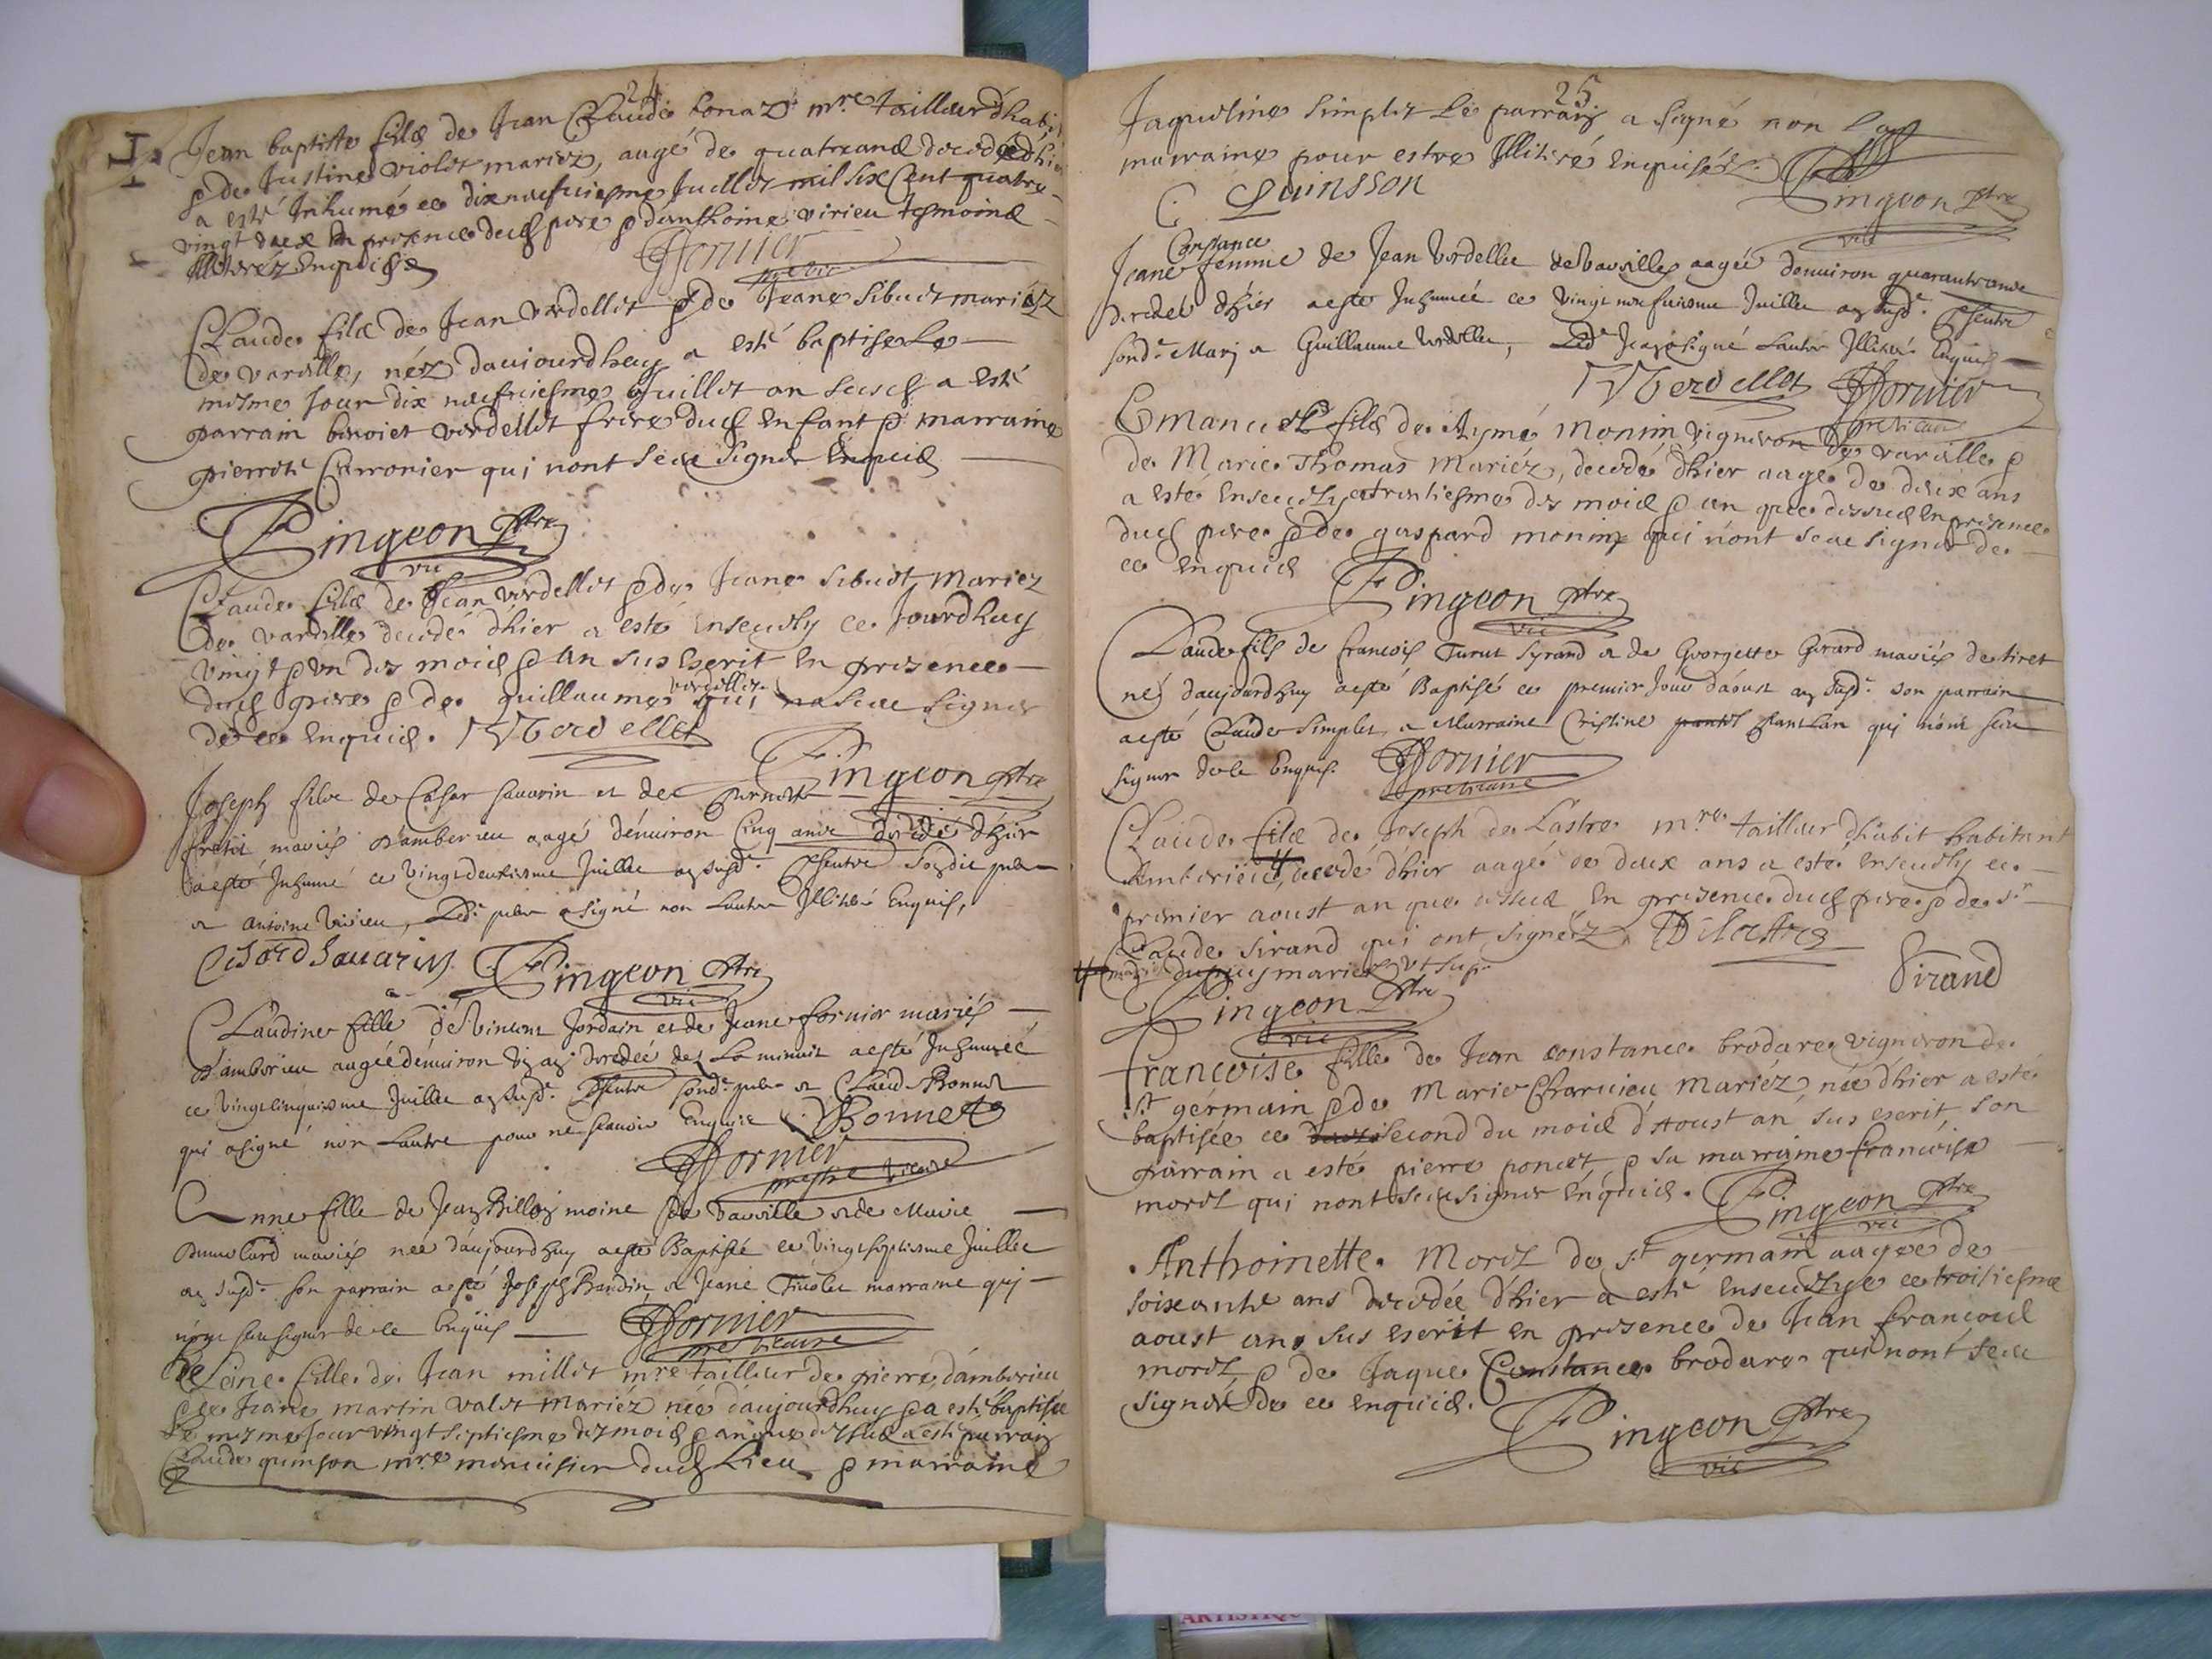 24
Jean baptiste filz de Jean Claude bonaz mre tailleur dhabit
& de Justine violet mariez, aagé de quatre ans decedé dhier
a esté Inhumé ce dix neufuiesme Juillet mil six Cent quatre
vingt deux En presence dud pere & danthoine virieu tesmoins
Illiterez Enquis
fornier
pre vic
Claude filz de Jean verdellet & de Jeane sibuet mariez
de vareille, néz daujourdhuy a esté baptisé Le
mesme Jour dix neufuiesme Juillet an susd a esté
parrain benoict verdellet frere dud Enfant & marraine
pierrete Charronier qui nont sceu Signer Enquis
Pingeon ptre
vic
Claude filz de Jean verdellet & de Jeane sibuet, mariez
de vareille decedé dhier a esté Enseuely ce Jourdhuy
vingt & un des mois & an sus Escrit En presence
dud pere & de guillaume verdellet qui na sceu signer
de ce Enquis. J Verdellet
Pingeon ptre
Joseph filz de Cesar sauarin et de pernette
mariés d'amberieu aagé denuiron Cinq ans decedé dhier
a esté Inhumé ce vingt deuxiesme Juillet an susd. psent sondit pere
et antoine virieu, Led. pere a signé non Lautre Illiteré Enquis,
Cesard Sauarin
Pingeon ptre
vic
Claudine fille de Vincent Jordain et de Jeane fornier mariés
d'amberieu aagée denuiron dix ans decedée des La minuit a esté Inhumée
ce vingt cinquiesme Juillet an susd. psent sond. pere et Claude Bonnet
qui a signé non Lautre pour ne scauoir Enquis C. Bonnet
fornier
prestre vicaire
Anne fille de Jean Billon moine de Vareille et de Marie
mariés née daujourdhuy a esté Baptisée ce vingt septiesme Juillet
an susd. son parrain a esté Joseph Baudin et Jeane marraine qui
nont sceu signer de ce Enquis
fornier
pre vicaire
heleine fille de Jean millet mre tailleur de pierre, damberieu
& de Jeane martin valet mariéz née daujourdhuy & a esté baptisée
Le mesme Jour vingt septiesme des mois & an que dessus a esté parrain
Claude quinson mre menuisier dud Lieu & marraine
25
Jaqueline simplet Le parrain a signé non La
marraine pour estre Illiteré Enquis
C. Quinsson
Pingeon ptre
vic
Jeane Constance femme de Jean Verdellet de Vareilles aagée denuiron quarante ans
decedée dhier a esté Inhumée ce vingt neufuiesme Juillet an susd. psent
sond. Mary et Guillaume verdellet, Led. Jean a signé Lautre Illiteré Enquis
J Verdellet fornier
pre vicaire
Emanuel filz de Aymé Monin vigneron de vareille &
de Marie Thomas Mariéz, decedé dhier aagé de deux ans
a esté Enseuely ce trentiesme des mois & an que dessus En presence
dud pere & de gaspard monin qui nont sceu signer de
ce Enquis
Pingeon ptre
vic
Claude fils de francois Turut Syrand et de Georgette Girard mariés de tiret
né daujourdhuy a esté Baptisé ce premier Jour daoust an susd. son parrain
a esté Claude Simplet, et Marraine Cristine qui nont sceu
signer de ce Enquis. fornier
pre vicaire
Claude filz de Joseph de Lastre mre tailleur dhabit habitant
Amberieu, decedé dhier aagé de deux ans a esté Enseuely ce
premier aoust an que dessus En presence dud pere & de sr
Claude sirand qui ont signéz. DelAstre
Sirand
marie dupuy mariez vt supra
Pingeon ptre
vic
francoise fille de Jean constance brodare vigneron de
st germain & de Marie Charuieu Mariéz, née dhier a esté
baptisée ce second du mois d'Aoust an sus escrit son
parrain a esté pierre poncet, & sa marraine francoise
morel qui nont sceu signer Enquis.
Pingeon ptre
vic
Anthoinette Morel de st germain aagée de
soixante ans decedée dhier a esté Enseuelye ce troisiesme
aoust ans sus escrit en presence de Jean francois
morel, & de Jaque Constance brodare qui nont sceu
signer de ce Enquis.
Pingeon ptre
vic
ARTISTIQU